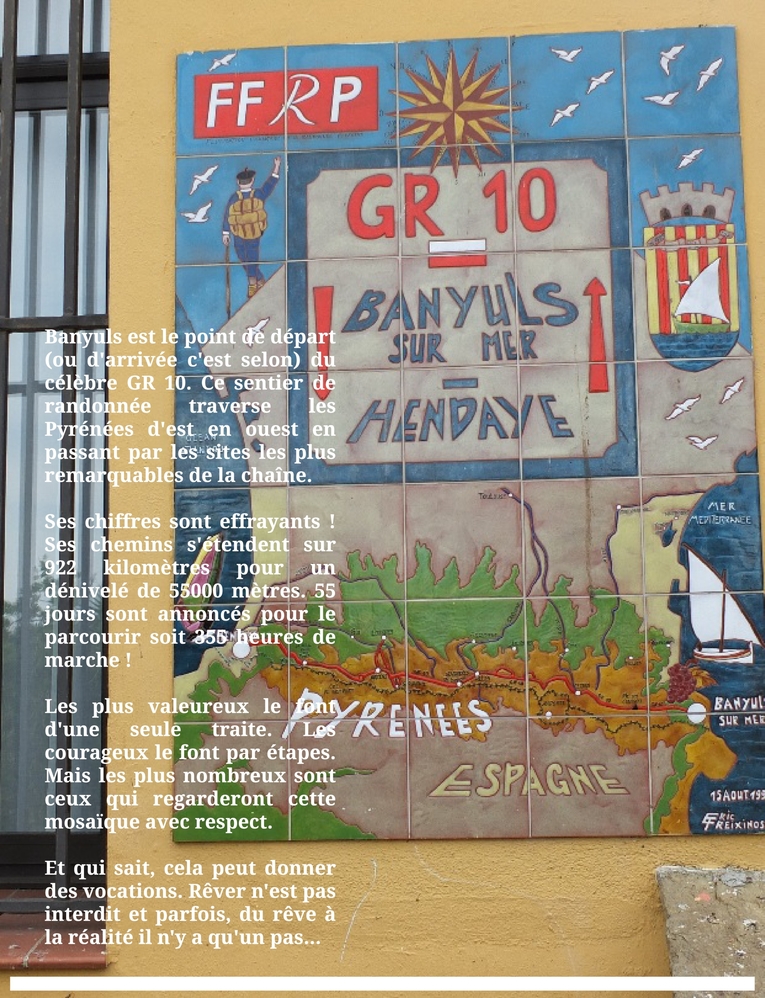 FFRP
GR 10
BANYULS
SUR MER
HENDAYE
Toulouse
MER
MEDITERRANEE
PYRENEES
ESPAGNE
BANYULS
SUR MER
15 AOUT 199
ERIC
FREIXINOS
Banyuls est le point de départ
(ou d'arrivée c'est selon) du
célèbre GR 10. Ce sentier de
randonnée traverse les
Pyrénées d'est en ouest en
passant par les sites les plus
remarquables de la chaîne.
Ses chiffres sont effrayants !
Ses chemins s'étendent sur
922 kilomètres pour un
dénivelé de 55000 mètres. 55
jours sont annoncés pour le
parcourir soit 355 heures de
marche !
Les plus valeureux le font
d'une seule traite. Les
courageux le font par étapes.
Mais les plus nombreux sont
ceux qui regarderont cette
mosaïque avec respect.
Et qui sait, cela peut donner
des vocations. Rêver n'est pas
interdit et parfois, du rêve à
la réalité il n'y a qu'un pas...